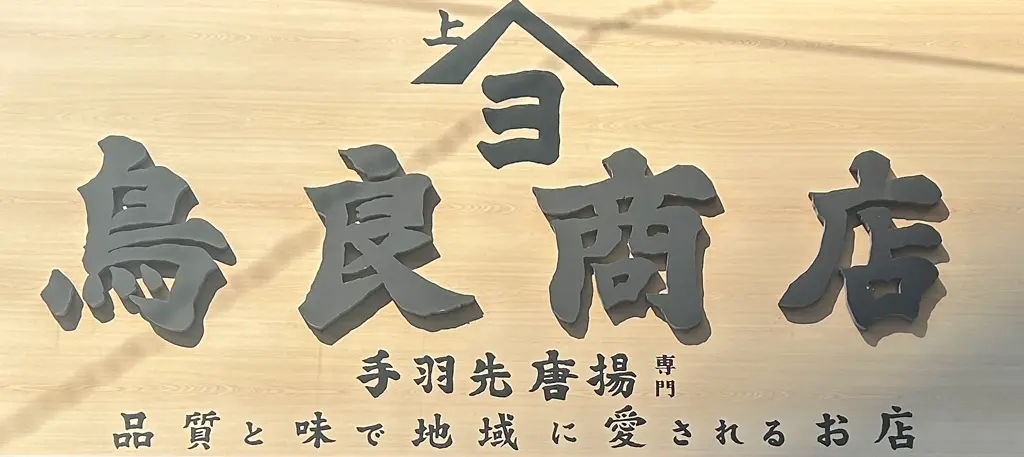 上
ヨ
鳥良商店
手羽先唐揚専門
品質と味で地域に愛されるお店